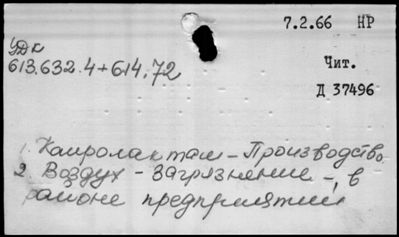 7.2.66 НР
УДК
613.632.4+614.72
Чит.
Д 37496
1. Капролактам - Производство
2. Воздух - Загрязнение -, в
районе предприятий